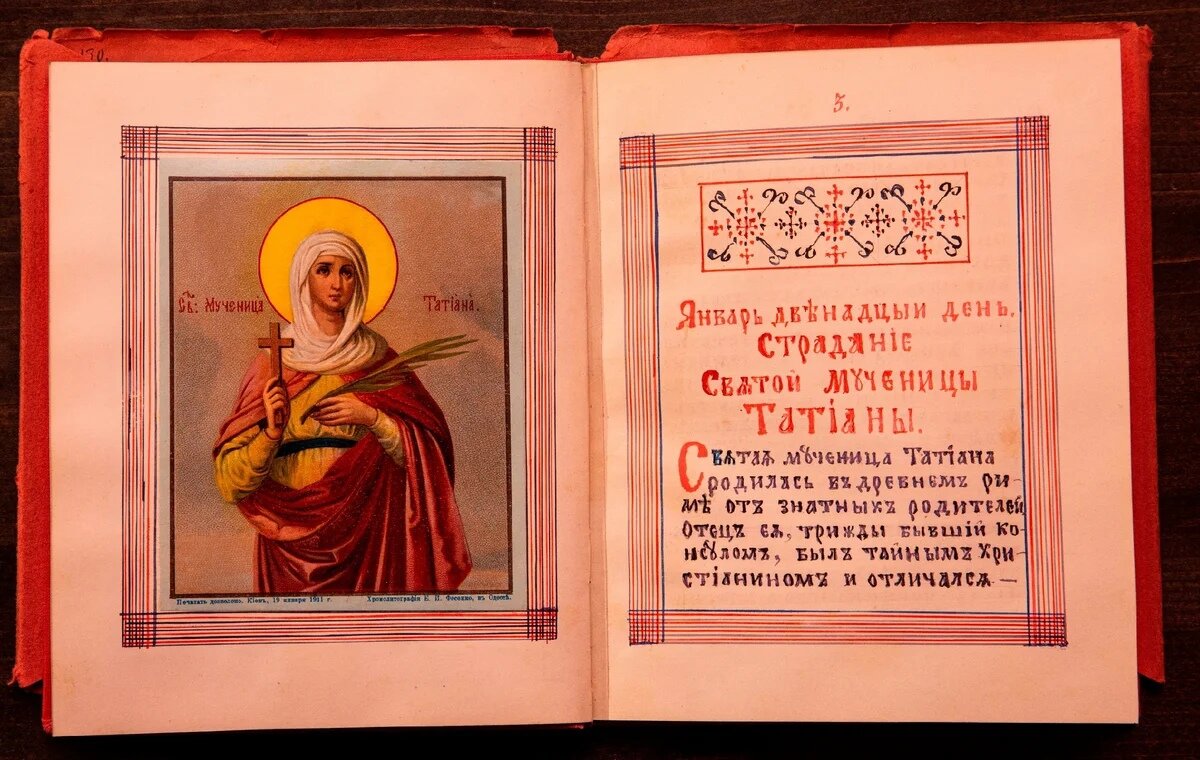 130.
Св: Мученица Татіана.
Печатать дозволено. Кіевъ, 19 января 1911 г. Хромолитографія Е. И. Фесенко, въ Одессѣ.
3.
Январь двѣнадцыи день.
Страданіе
Святой Мꙋченицы
Татіаны.
Святая мꙋченица Татіана
родилась въ древнемъ ри-
мѣ отъ знатныхъ родителей
Отецъ ея, трижды бывшій ко-
нсꙋломъ, былъ тайнымъ хри-
стіяниномъ и отличался —